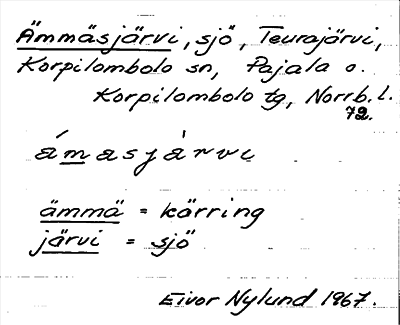 Ämmäsjärvi, sjö, Teurajärvi,
Korpilombolo sn, Pajala o.
Korpilombolo tg, Norrb. l.
72.
ámasjàrvi
ämmä = kärring
järvi = sjö
Eivor Nylund 1967.